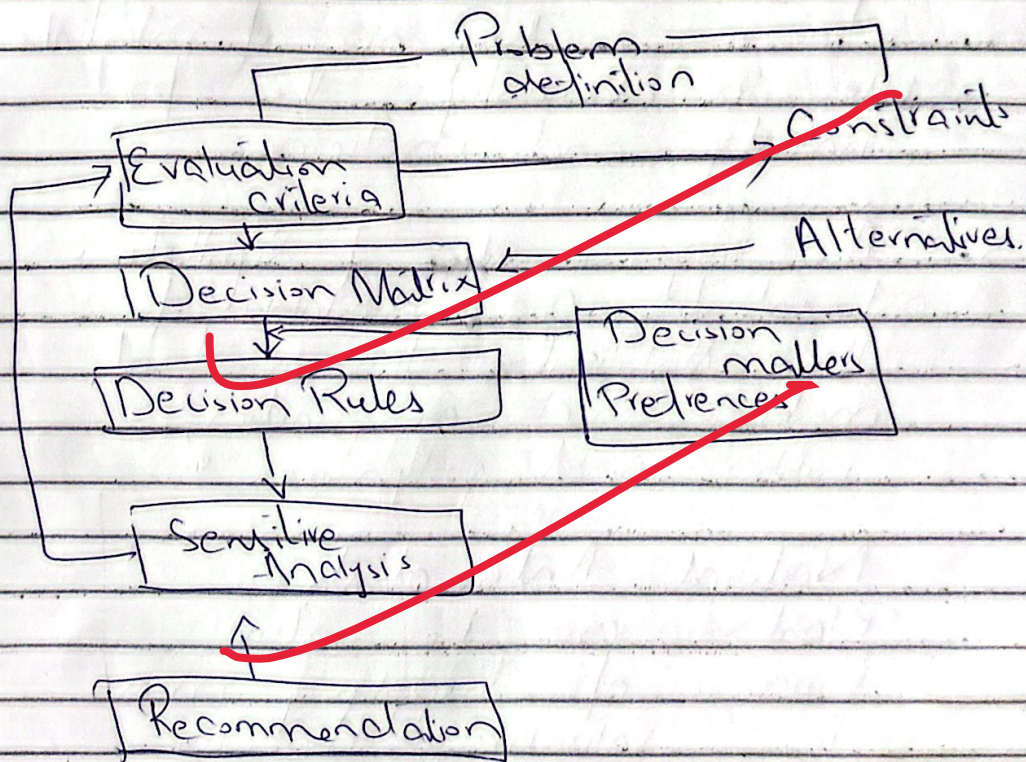 Problem
definition
Constraints
Evaluation
criteria
Alternatives.
Decision Matrix
Decision
mallers
Predrences
Decision Rules
Sensitive
Analysis
Recommendation